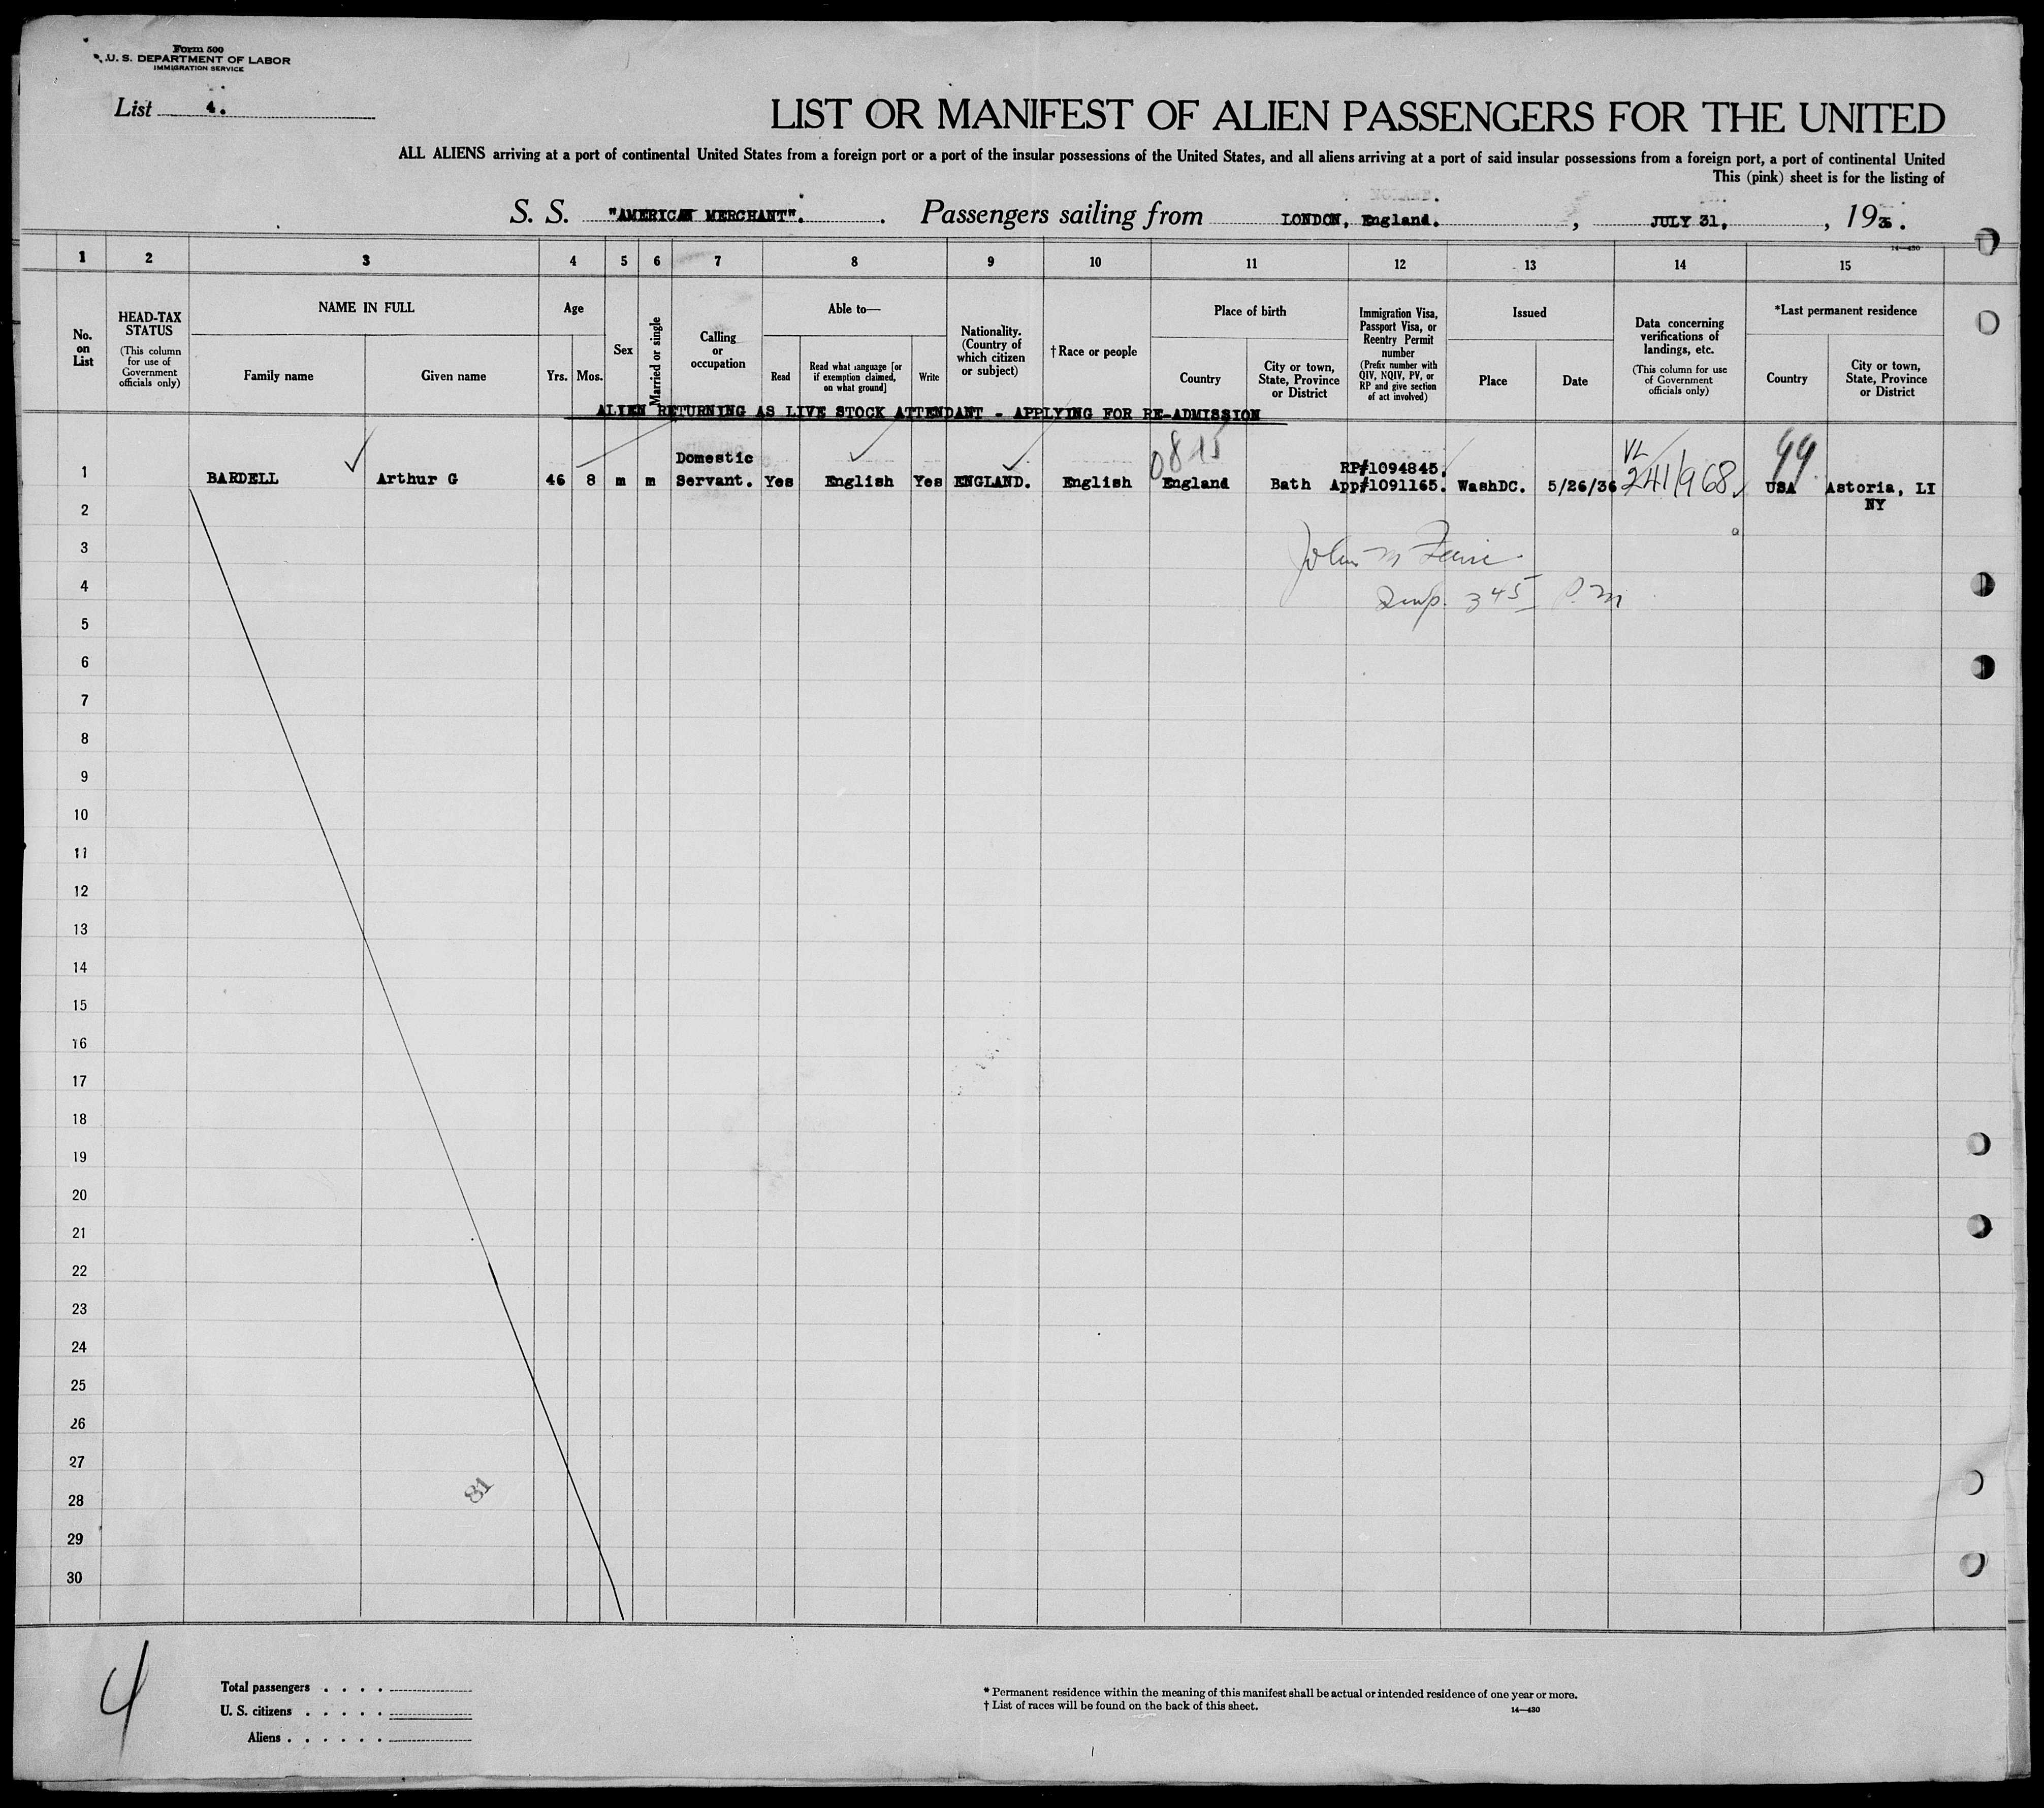 Form 500
U. S. DEPARTMENT OF LABOR
IMMIGRATION SERVICE
List 4.
LIST OR MANIFEST OF ALIEN PASSENGERS FOR THE UNITED
ALL ALIENS arriving at a port of continental United States from a foreign port or a port of the insular possessions of the United States, and all aliens arriving at a port of said insular possessions from a foreign port, a port of continental United
This (pink) sheet is for the listing of
S. S. "AMERICAN MERCHANT". Passengers sailing from LONDON, England. , JULY 31, , 193
14—430
1 2 3 4 5 6 7 8 9 10 11 12 13 14 15
No. on List
HEAD-TAX STATUS
(This column for use of Government officials only)
NAME IN FULL
Family name
Given name
Age
Yrs. Mos.
Sex
Married or single
Calling or occupation
Able to—
Read
Read what language [or if exemption claimed, on what ground]
Write
Nationality. (Country of which citizen or subject)
† Race or people
Place of birth
Country
City or town, State, Province or District
Immigration Visa, Passport Visa, or Reentry Permit number
(Prefix number with QIV, NQIV, PV, or RP and give section of act involved)
Issued
Place
Date
Data concerning verifications of landings, etc.
(This column for use of Government officials only)
*Last permanent residence
Country
City or town, State, Province or District
ALIEN RETURNING AS LIVE STOCK ATTENDANT - APPLYING FOR RE-ADMISSION
0815
99
Domestic
RP#1094845.
1 BARDELL Arthur G 46 8 m m Servant. Yes English Yes ENGLAND. English England Bath App#1091165. WashDC. 5/26/36 241/968 USA Astoria, LI
NY
2
3
John M
4
345 P.M
5
6
7
8
9
10
11
12
13
14
15
16
17
18
19
20
21
22
23
24
25
26
27
81
28
29
30
4
Total passengers . . . .
U. S. citizens . . . . .
Aliens . . . . . .
* Permanent residence within the meaning of this manifest shall be actual or intended residence of one year or more.
† List of races will be found on the back of this sheet.
14—430